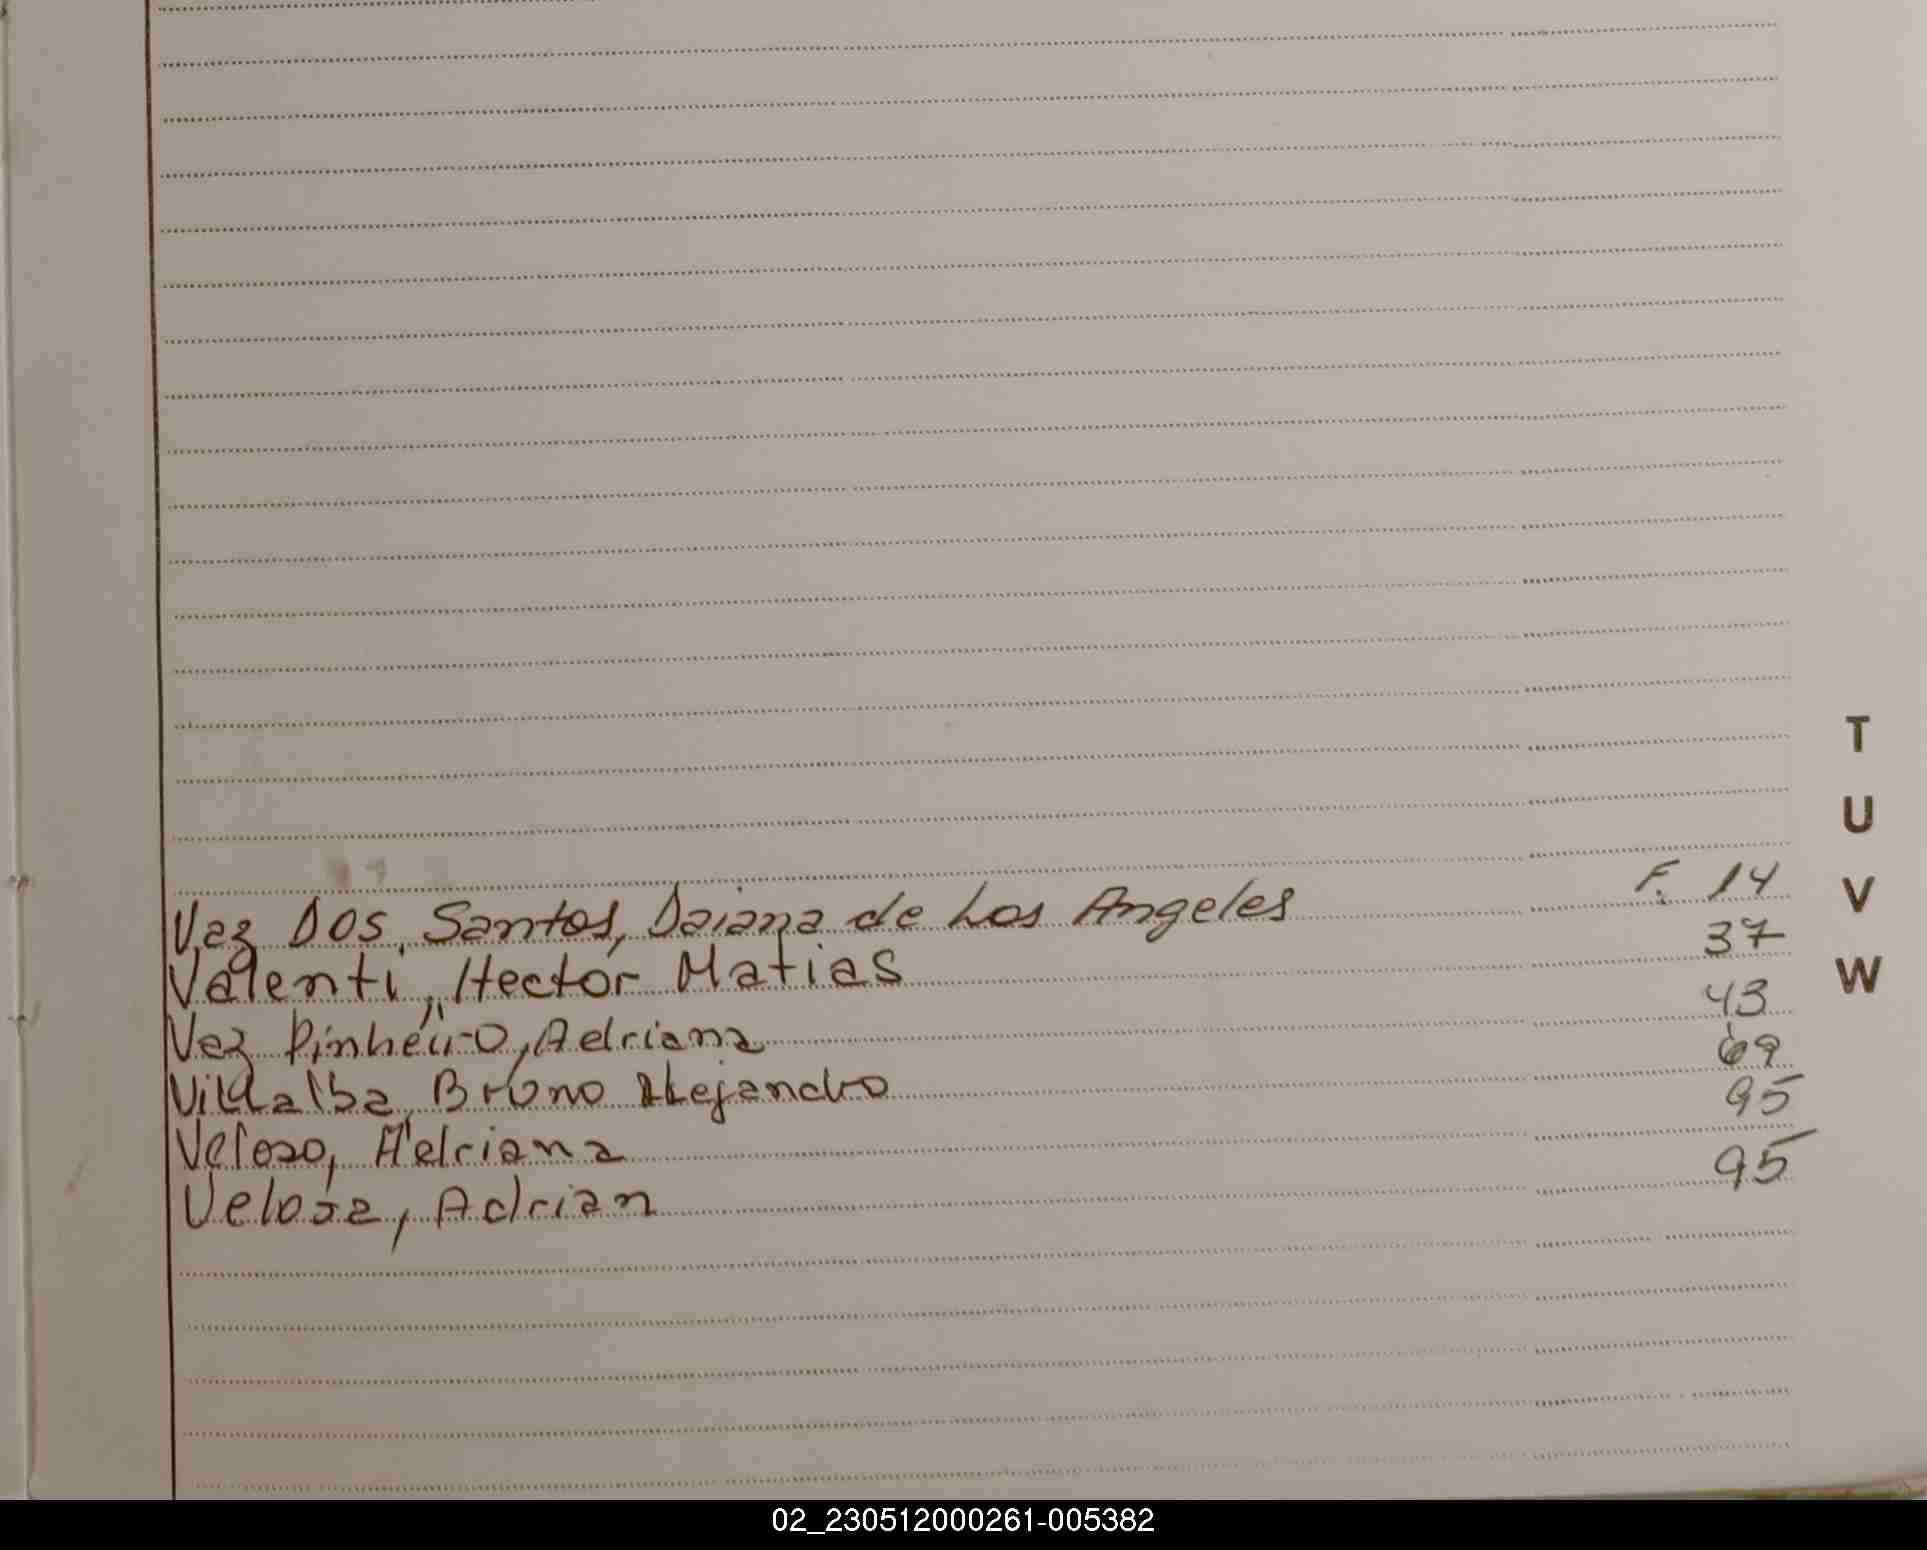 Vaz Dos Santos, Daiana de Los Angeles F. 14
Valenti, Hector Matias 37
Vaz Pinheiro, Adriana 43
Villalba, Bruno Alejandro 69
Veloso, Adriana 95
Veloza, Adrian 95
T
U
V
W
02_230512000261-005382